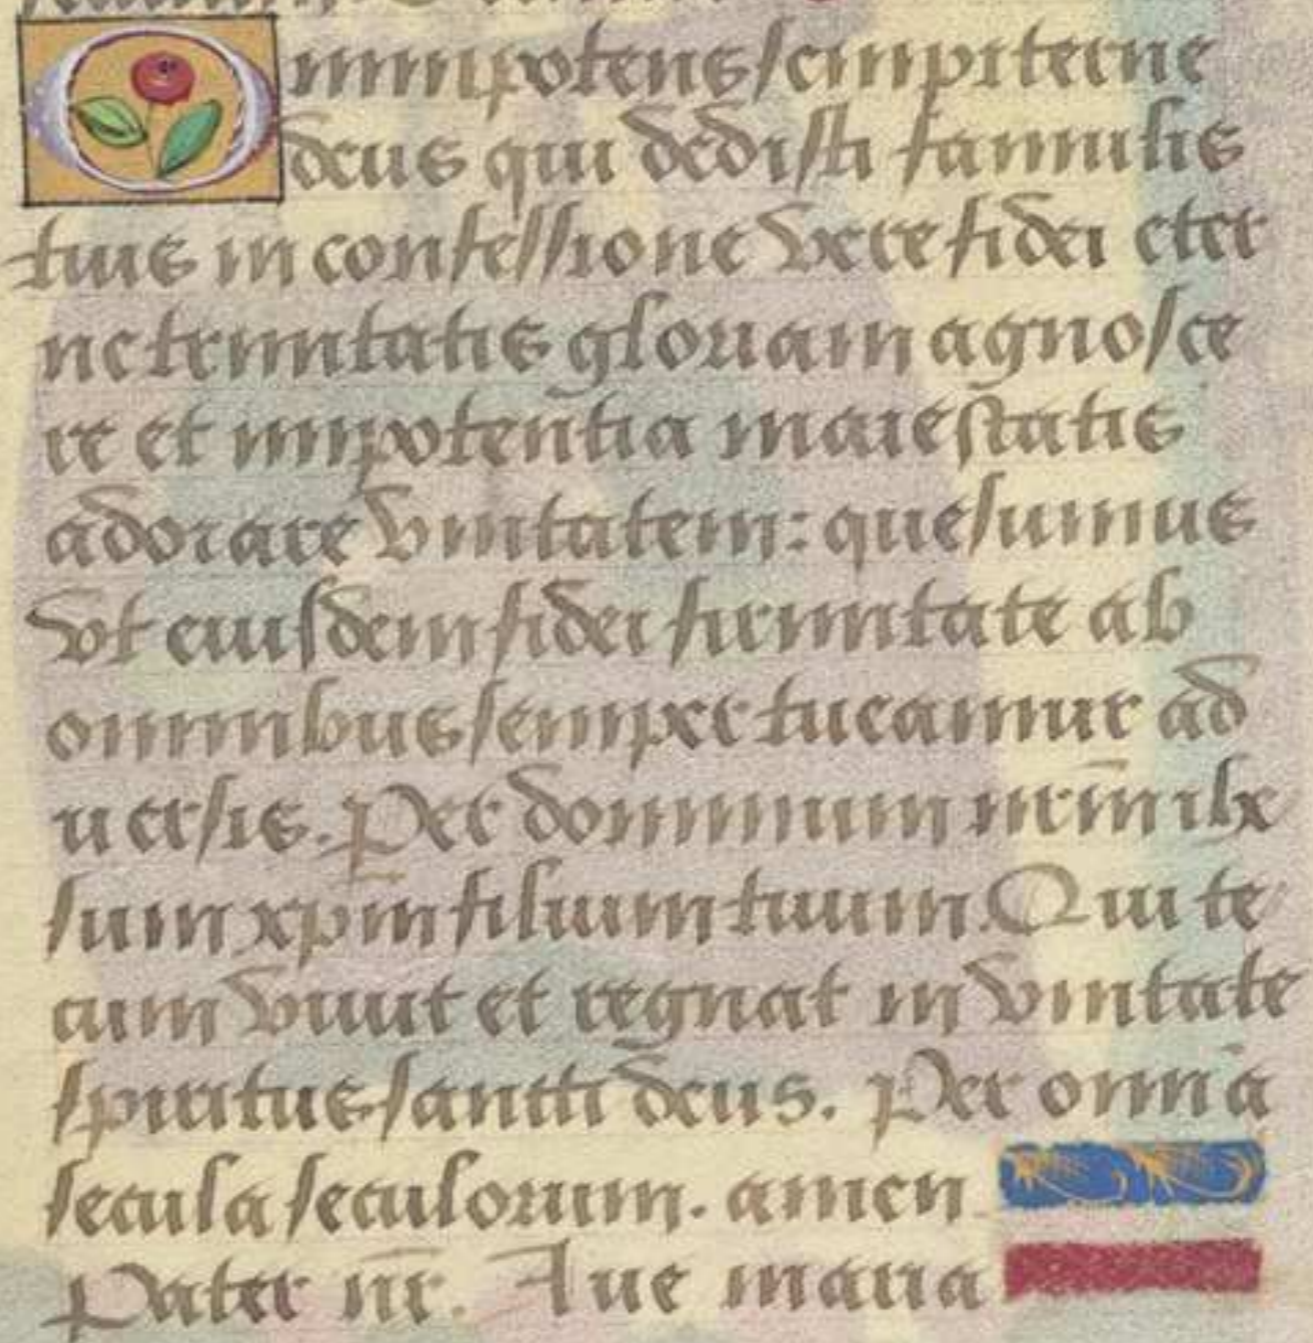 Omnipotens sempiterne
deus qui dedisti famulis
tuis in confessione vere fidei eter
ne trinitatis gloriam agnosce
re et in potentia maiestatis
adorare vnitatem: quesumus
vt eiusdem fidei firmitate ab
omnibus semper tueamur ad
uersis. Per dominum nrm̄ ihe
sum xpm̄ filium tuum. Qui te
cum viuit et regnat in vnitate
spiritus sancti deus. Per omnā
secula seculorum. amen
Pater nr̄. Aue maria